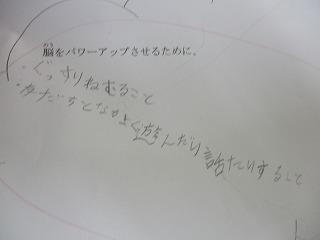 のう
脳をパワーアップさせるために、
・ぐっすりねむること
・友だちとなかよく遊んだり話たりすること